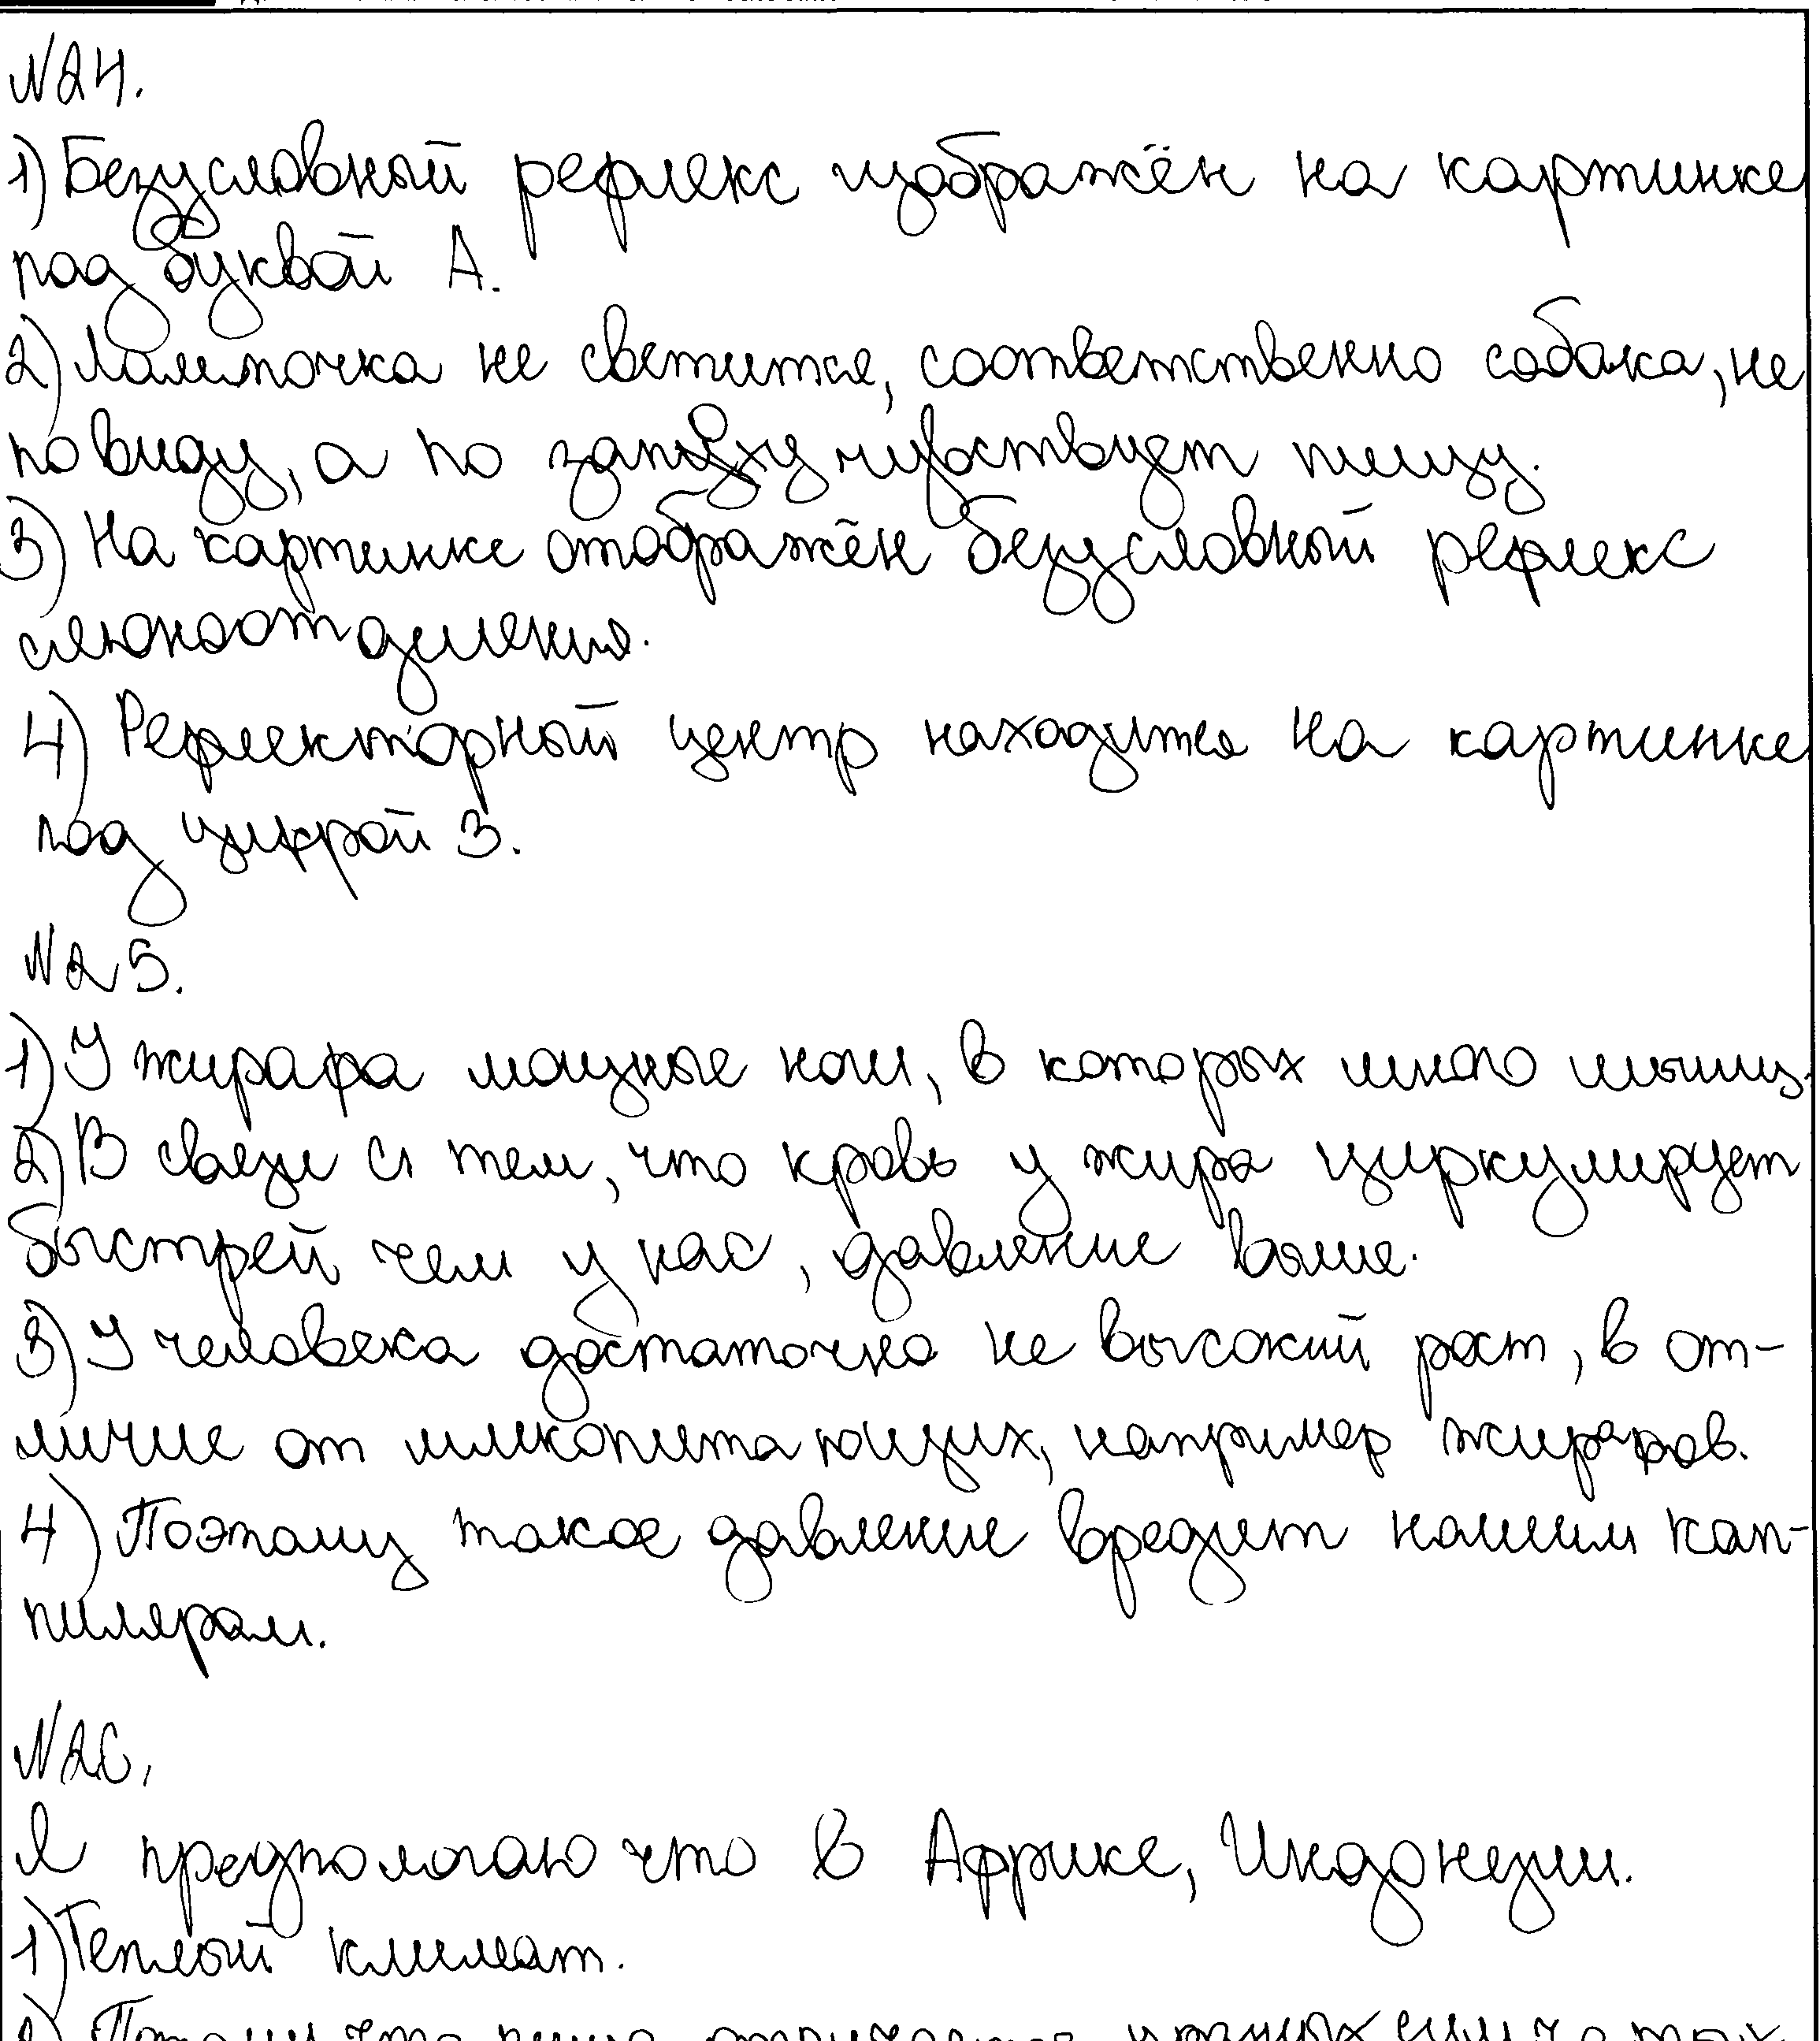 №24.
1) Безусловный рефлекс изображён на картинке
под буквой А.
2) Лампочка не светится, соответственно собака, не
по виду, а по запаху чувствует пищу.
3) На картинке отображён безусловный рефлекс
слюноотделения.
4) Рефлекторный центр находится на картинке
под цифрой 3.
№25.
1) У жирафа мощные ноги, в которых много мышц.
2) В связи с тем, что кровь у жира циркулирует
быстрей чем у нас, давление выше.
3) У человека достаточно не высокий рост, в от-
личие от млекопитающих, например жирафов.
4) Поэтому такое давление вредит нашим кап-
пилярам.
№26.
Я предпологаю что в Африке, Индонезии.
1) Теплый климат.
2) Потому что